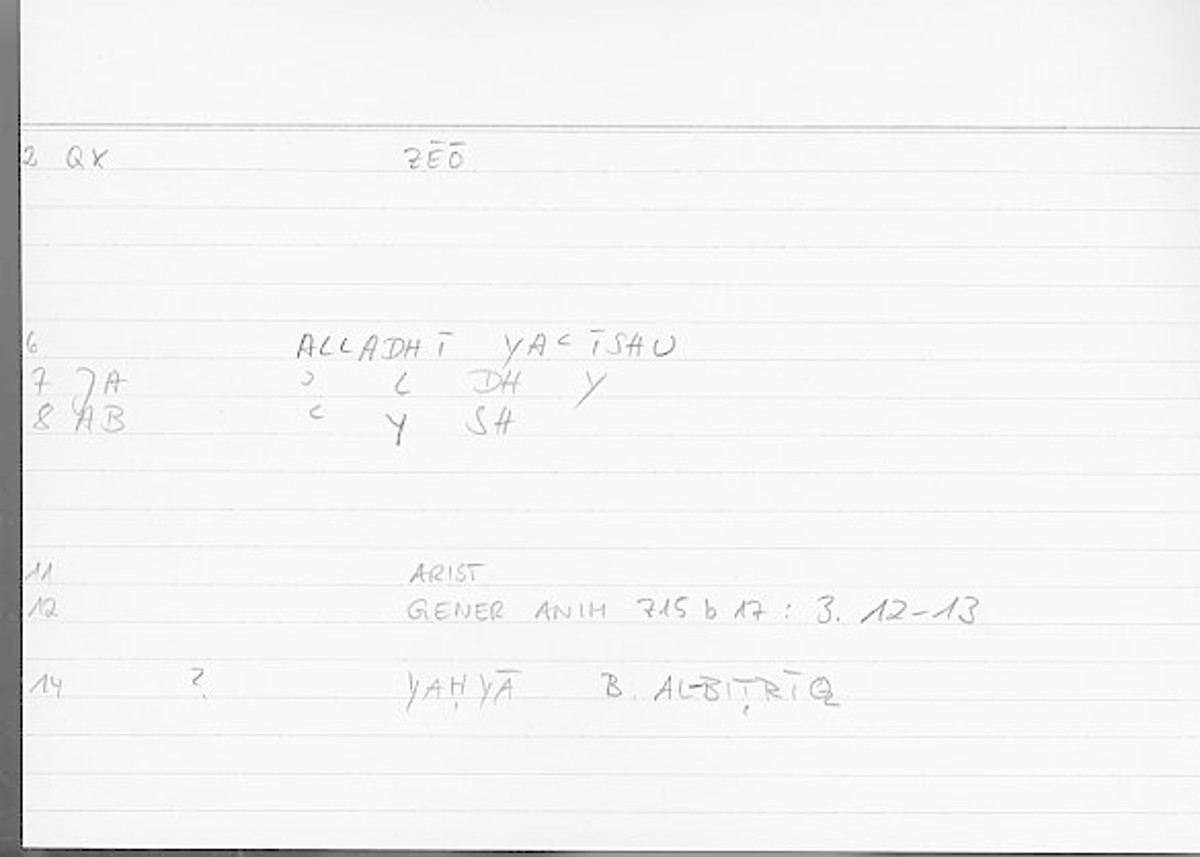 2 QX ZĒŌ
6 ALLADHĪ YAʿĪSHU
7 JA ʾ L DH Y
8 AB ʿ Y SH
11 ARIST
12 GENER ANIM 715 b 17 : 3. 12-13
14 ? YAḤYĀ B. AL-BIṬRĪQ